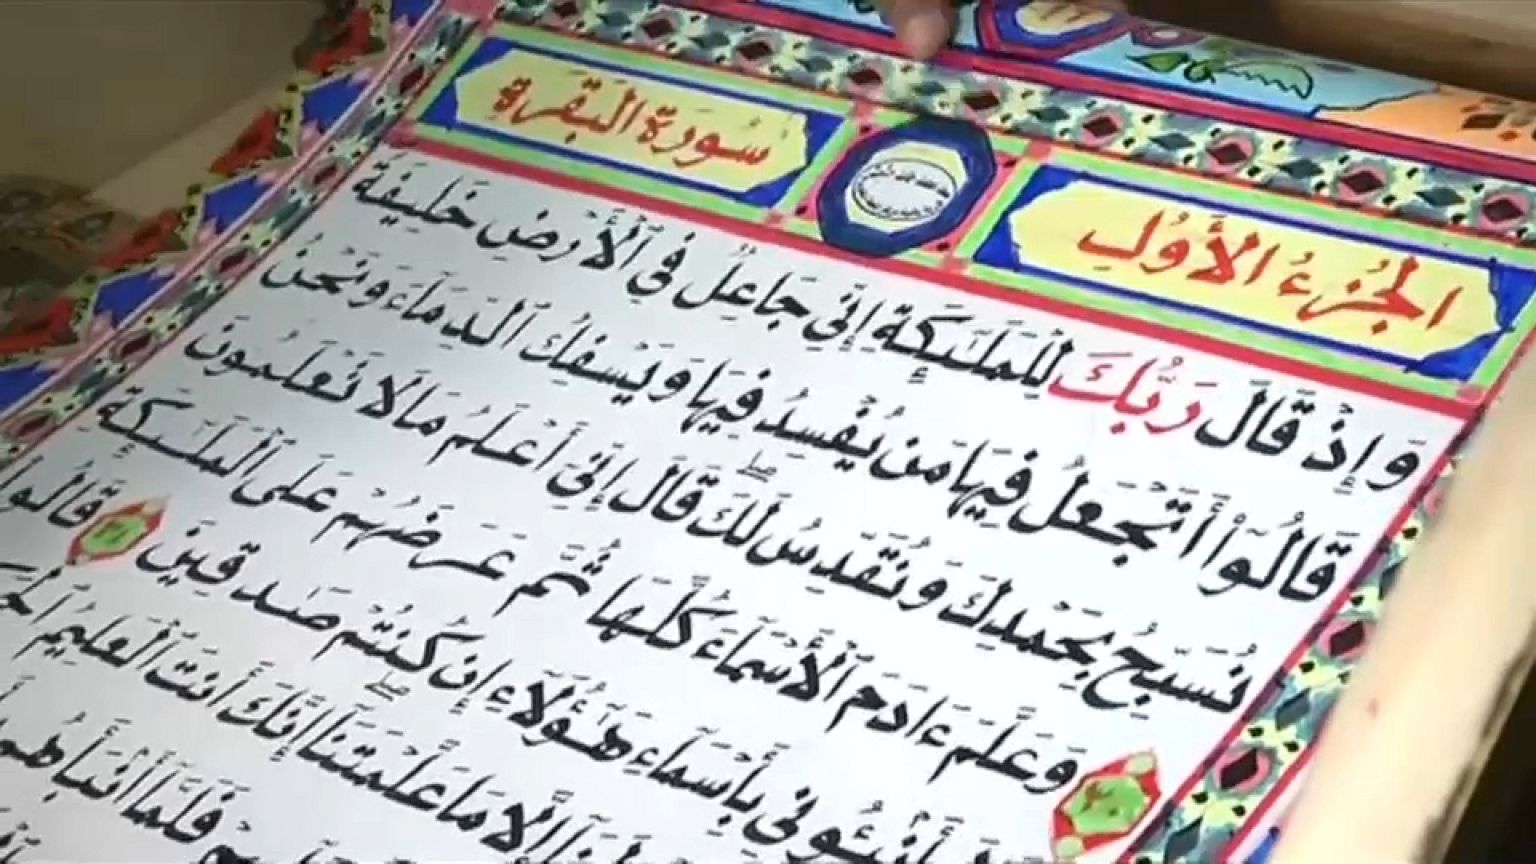 الجُزءُ الأَوَّلِ
سُورَةُ البَقَرَةِ
وَإِذۡ قَالَ رَبُّكَ لِلۡمَلَٰٓئِكَةِ إِنِّي جَاعِلٞ فِي ٱلۡأَرۡضِ خَلِيفَةٗ
قَالُوٓاْ أَتَجۡعَلُ فِيهَا مَن يُفۡسِدُ فِيهَا وَيَسۡفِكُ ٱلدِّمَآءَ وَنَحۡنُ
نُسَبِّحُ بِحَمۡدِكَ وَنُقَدِّسُ لَكَۖ قَالَ إِنِّيٓ أَعۡلَمُ مَا لَا تَعۡلَمُونَ
وَعَلَّمَ ءَادَمَ ٱلۡأَسۡمَآءَ كُلَّهَا ثُمَّ عَرَضَهُمۡ عَلَى ٱلۡمَلَٰٓئِكَةِ
أَنۢبِـُٔونِي بِأَسۡمَآءِ هَٰٓؤُلَآءِ إِن كُنتُمۡ صَٰدِقِينَ قَالُواْ
إِلَّا مَا عَلَّمۡتَنَآۖ إِنَّكَ أَنتَ ٱلۡعَلِيمُ
فَلَمَّآ أَنۢبَأَهُم